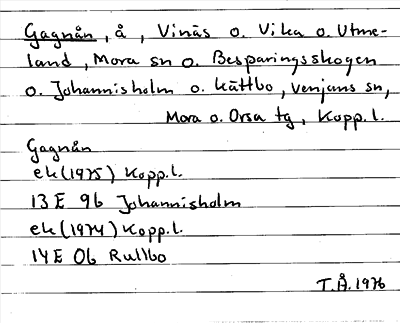 Gagnån, å, Vinäs o. Vika o. Utme-
land, Mora sn o. Besparingsskogen
o. Johannisholm o. Kättbo, Venjans sn,
Mora o. Orsa tg, Kopp.l.
Gagnån
ek(1975) Kopp.l.
13 E 9b Johannisholm
ek(1974) Kopp.l.
14 E 0b Rullbo
T.Å. 1976